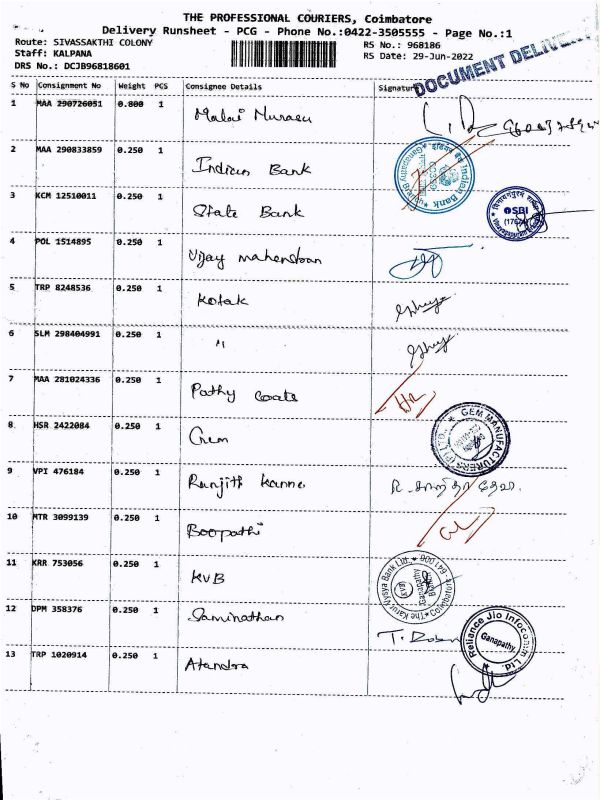 THE PROFESSIONAL COURIERS, Coimbatore
Delivery Runsheet - PCG - Phone No.:0422-3505555 - Page No.:1
Route: SIVASSAKTHI COLONY
Staff: KALPANA
DRS No.: DCJB96818601
RS No.: 968186
RS Date: 29-Jun-2022
DOCUMENT DELIVERY
S No Consignment No Weight PCS Consignee Details Signature
1 MAA 290726051 0.800 1 Malai Murasu
2 MAA 290833859 0.250 1 Indian Bank
Indian Bank
3 KCM 12510011 0.250 1 State Bank
SBI
4 POL 1514895 0.250 1 Vijay
5 TRP 8248536 0.250 1 Kotak
6 SLM 298404991 0.250 1 "
7 MAA 281024336 0.250 1 Pathy Coats
8 HSR 2422084 0.250 1 Gem
GEM MANUFACTURERS (P) LTD.
9 VPI 476184 0.250 1 Ranjith
10 MTR 3099139 0.250 1 Boopathi
11 KRR 753056 0.250 1 KVB
The Karur Vysya Bank Ltd. Coimbatore - 641 006
12 DPM 358376 0.250 1 Saminathan
Reliance Jio Infocomm Ltd.
Ganapathy
13 TRP 1020914 0.250 1